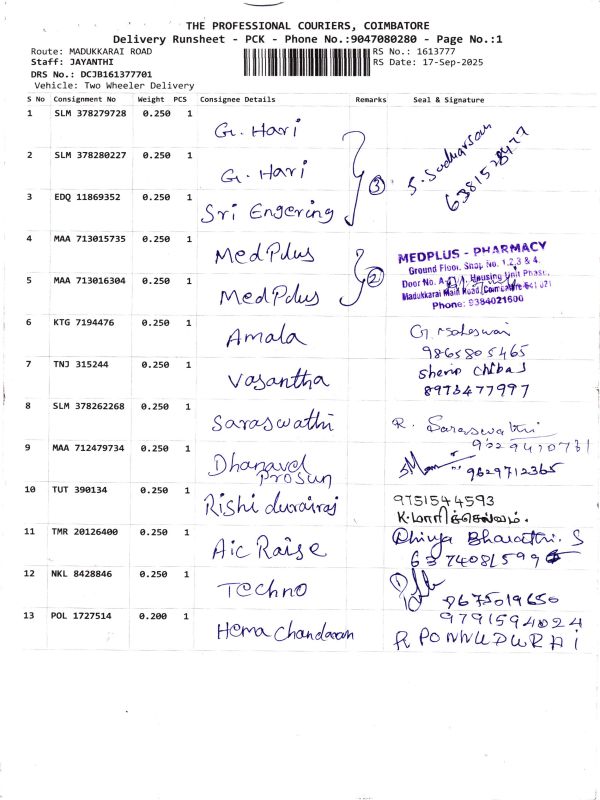 THE PROFESSIONAL COURIERS, COIMBATORE
Delivery Runsheet - PCK - Phone No.:9047080280 - Page No.:1
Route: MADUKKARAI ROAD RS No.: 1613777
Staff: JAYANTHI RS Date: 17-Sep-2025
DRS No.: DCJB161377701
Vehicle: Two Wheeler Delivery
S No Consignment No Weight PCS Consignee Details Remarks Seal & Signature
1 SLM 378279728 0.250 1 G. Hari
2 SLM 378280227 0.250 1 G. Hari
3 EDQ 11869352 0.250 1 Sri Engering
3
S. Sudharsan
6381528477
4 MAA 713015735 0.250 1 MedPlus
5 MAA 713016304 0.250 1 MedPlus
2
MEDPLUS - PHARMACY
Ground Floor, Shop No. 1,2,3 & 4,
Door No. Housing Unit Phase,
Madukkarai Main Road, Coimbatore 641 021
Phone: 9384021600
6 KTG 7194476 0.250 1 Amala
9865805465
7 TNJ 315244 0.250 1 Vasantha
8973477997
8 SLM 378262268 0.250 1 Saraswathi R. Saraswathi
9 MAA 712479734 0.250 1 Dhanavel
Prosun
9629712365
10 TUT 390134 0.250 1 Rishi durairaj 9751544593
K.மாரிச்செல்வம்.
11 TMR 20126400 0.250 1 Aic Raise Dhivya Bharathi. S
12 NKL 8428846 0.250 1 Techno
9675019650
13 POL 1727514 0.200 1 Hema Chandaran 9791594024
R PONNUDURAI